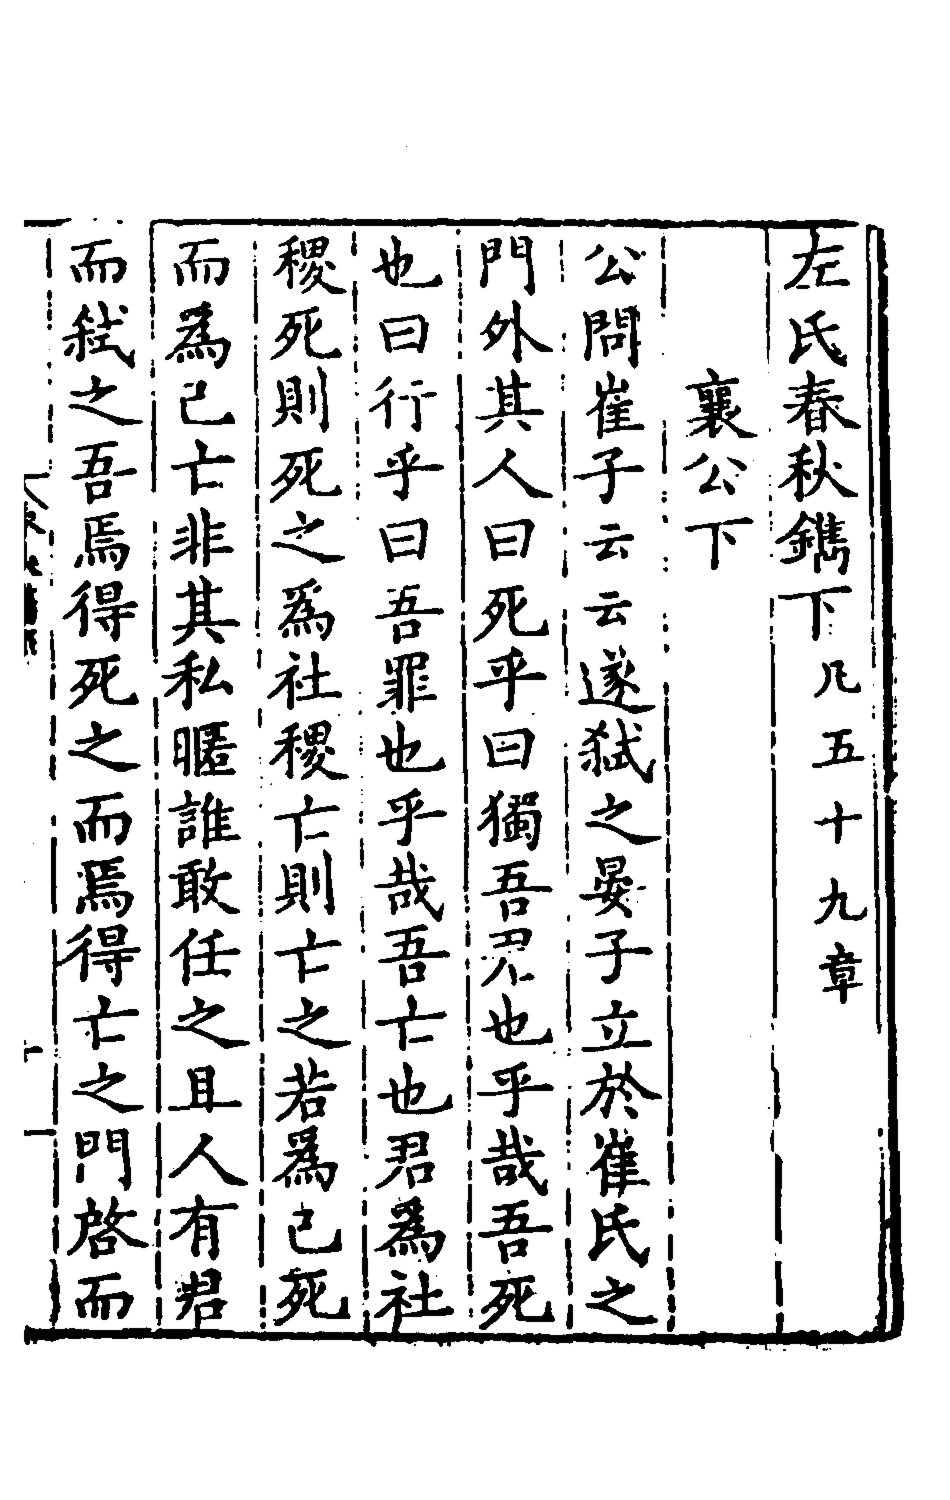 左氏春秋鐫下凡五十九章
襄公下
公問崔子云云遂弑之晏子立於崔氏之
門外其人曰死乎曰獨吾君也乎哉吾死
也曰行乎曰吾罪也乎哉吾亡也君為社
稷死則死之為社稷亡則亡之若為己死
而為己亡非其私暱誰敢任之且人有君
而弑之吾焉得死之而焉得亡之門啓而